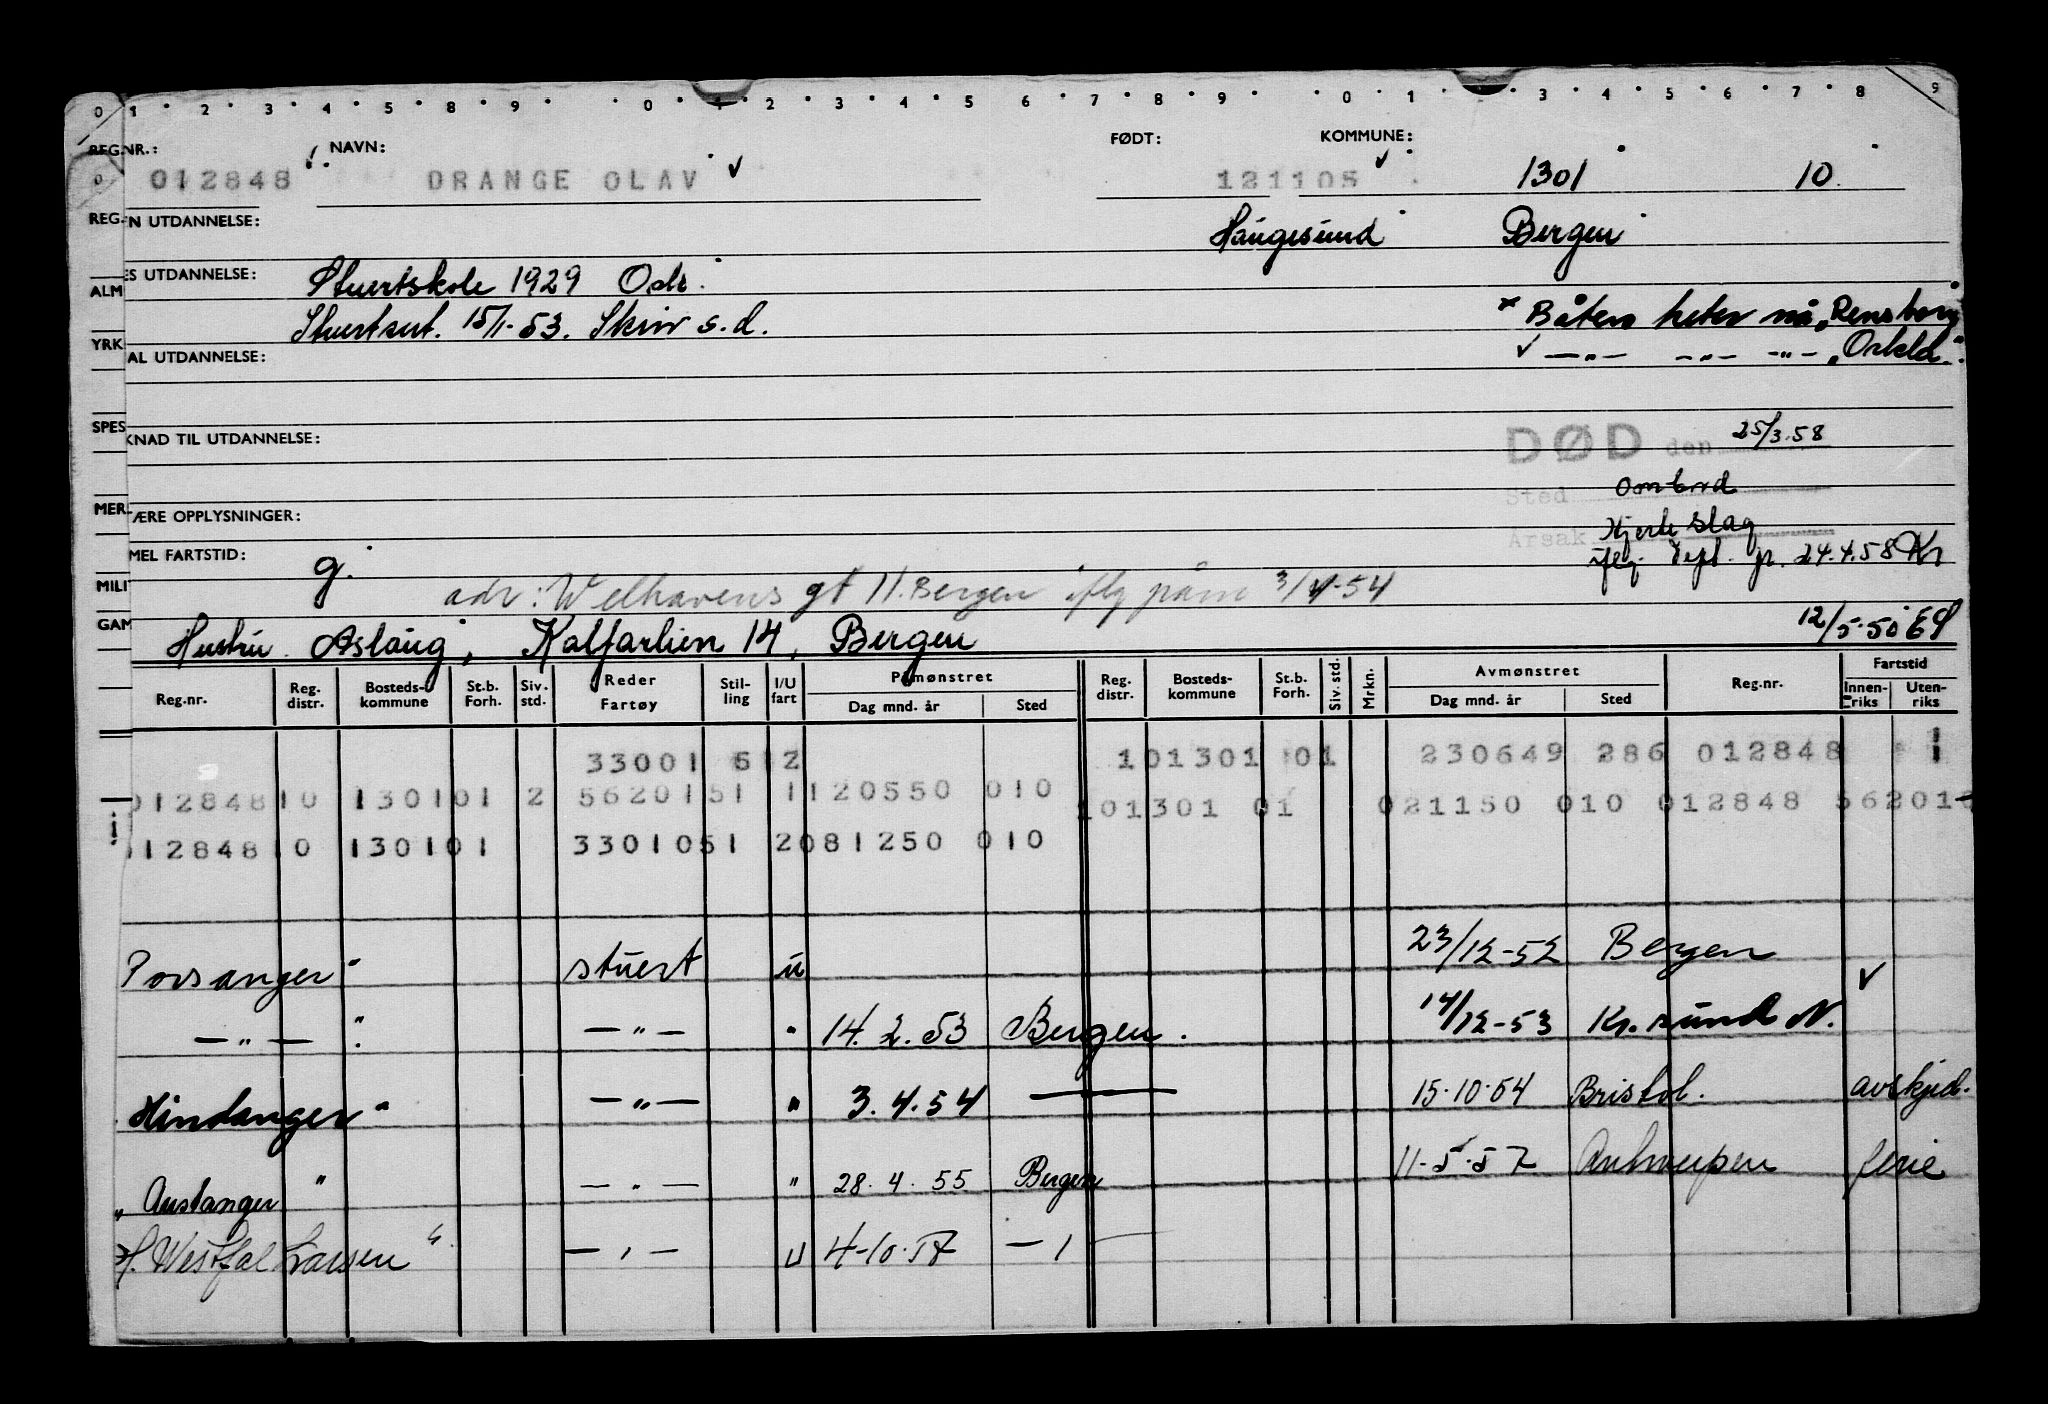 0 1 2 3 4 5 8 9 0 1 2 3 4 5 6 7 8 9 0 1 3 4 5 6 7 8 9
REG.NR.: NAVN: FØDT: KOMMUNE:
012848 DRANGE OLAV 121105 1301 10
REG. N UTDANNELSE: Haugesund Bergen
ALM ES UTDANNELSE: Stuertskole 1929 Oslo
Stuertsert. 15/1-53. Skriv s.d. * Båten heter nå „Rensborg
YRK AL UTDANNELSE: ✓ —„— —„— —„— „Orkla".
SPES KNAD TIL UTDANNELSE: DØD den 25/3.58
Sted ombord
MER ÆRE OPPLYSNINGER: Årsak Hjerteslag
MEL FARTSTID: g. iflg. Dept. gr. 24.4.58 Kr
MILI adr: Welhavens gt 11. Bergen iflg påm 3/4-54
GAM 12/5-50 ES
Hustru Aslaug, Kalfarlien 14, Bergen
Reg.nr. Reg. distr. Bosteds-kommune St.b. Forh. Siv. std. Reder Fartøy Stil-ling I/U fart Påmønstret Dag mnd. år Sted Reg. distr. Bosteds-kommune St.b. Forh. Siv. std. Mrkn. Avmønstret Dag mnd. år Sted Reg.nr. Fartstid Innen-riks Uten-riks
33001 5 2 101301 01 230649 286 012848
012848 10 130101 2 56201 51 1 120550 010 101301 01 021150 010 012848 56201
012848 10 130101 33010 51 2 081250 010
Porsanger" stuert u 23/12-52 Bergen
—„— " —„— " 14.2.53 Bergen. 14/12-53 Kr.sund N. ✓
Hindanger" —„— " 3.4.54 — 15.10.54 Bristol. avskjed.
„Austanger" —„— " 28.4.55 Bergen 11-5-57 Antwerpen ferie
H. Westfal Larsen" —„— u 4-10-57 —„—